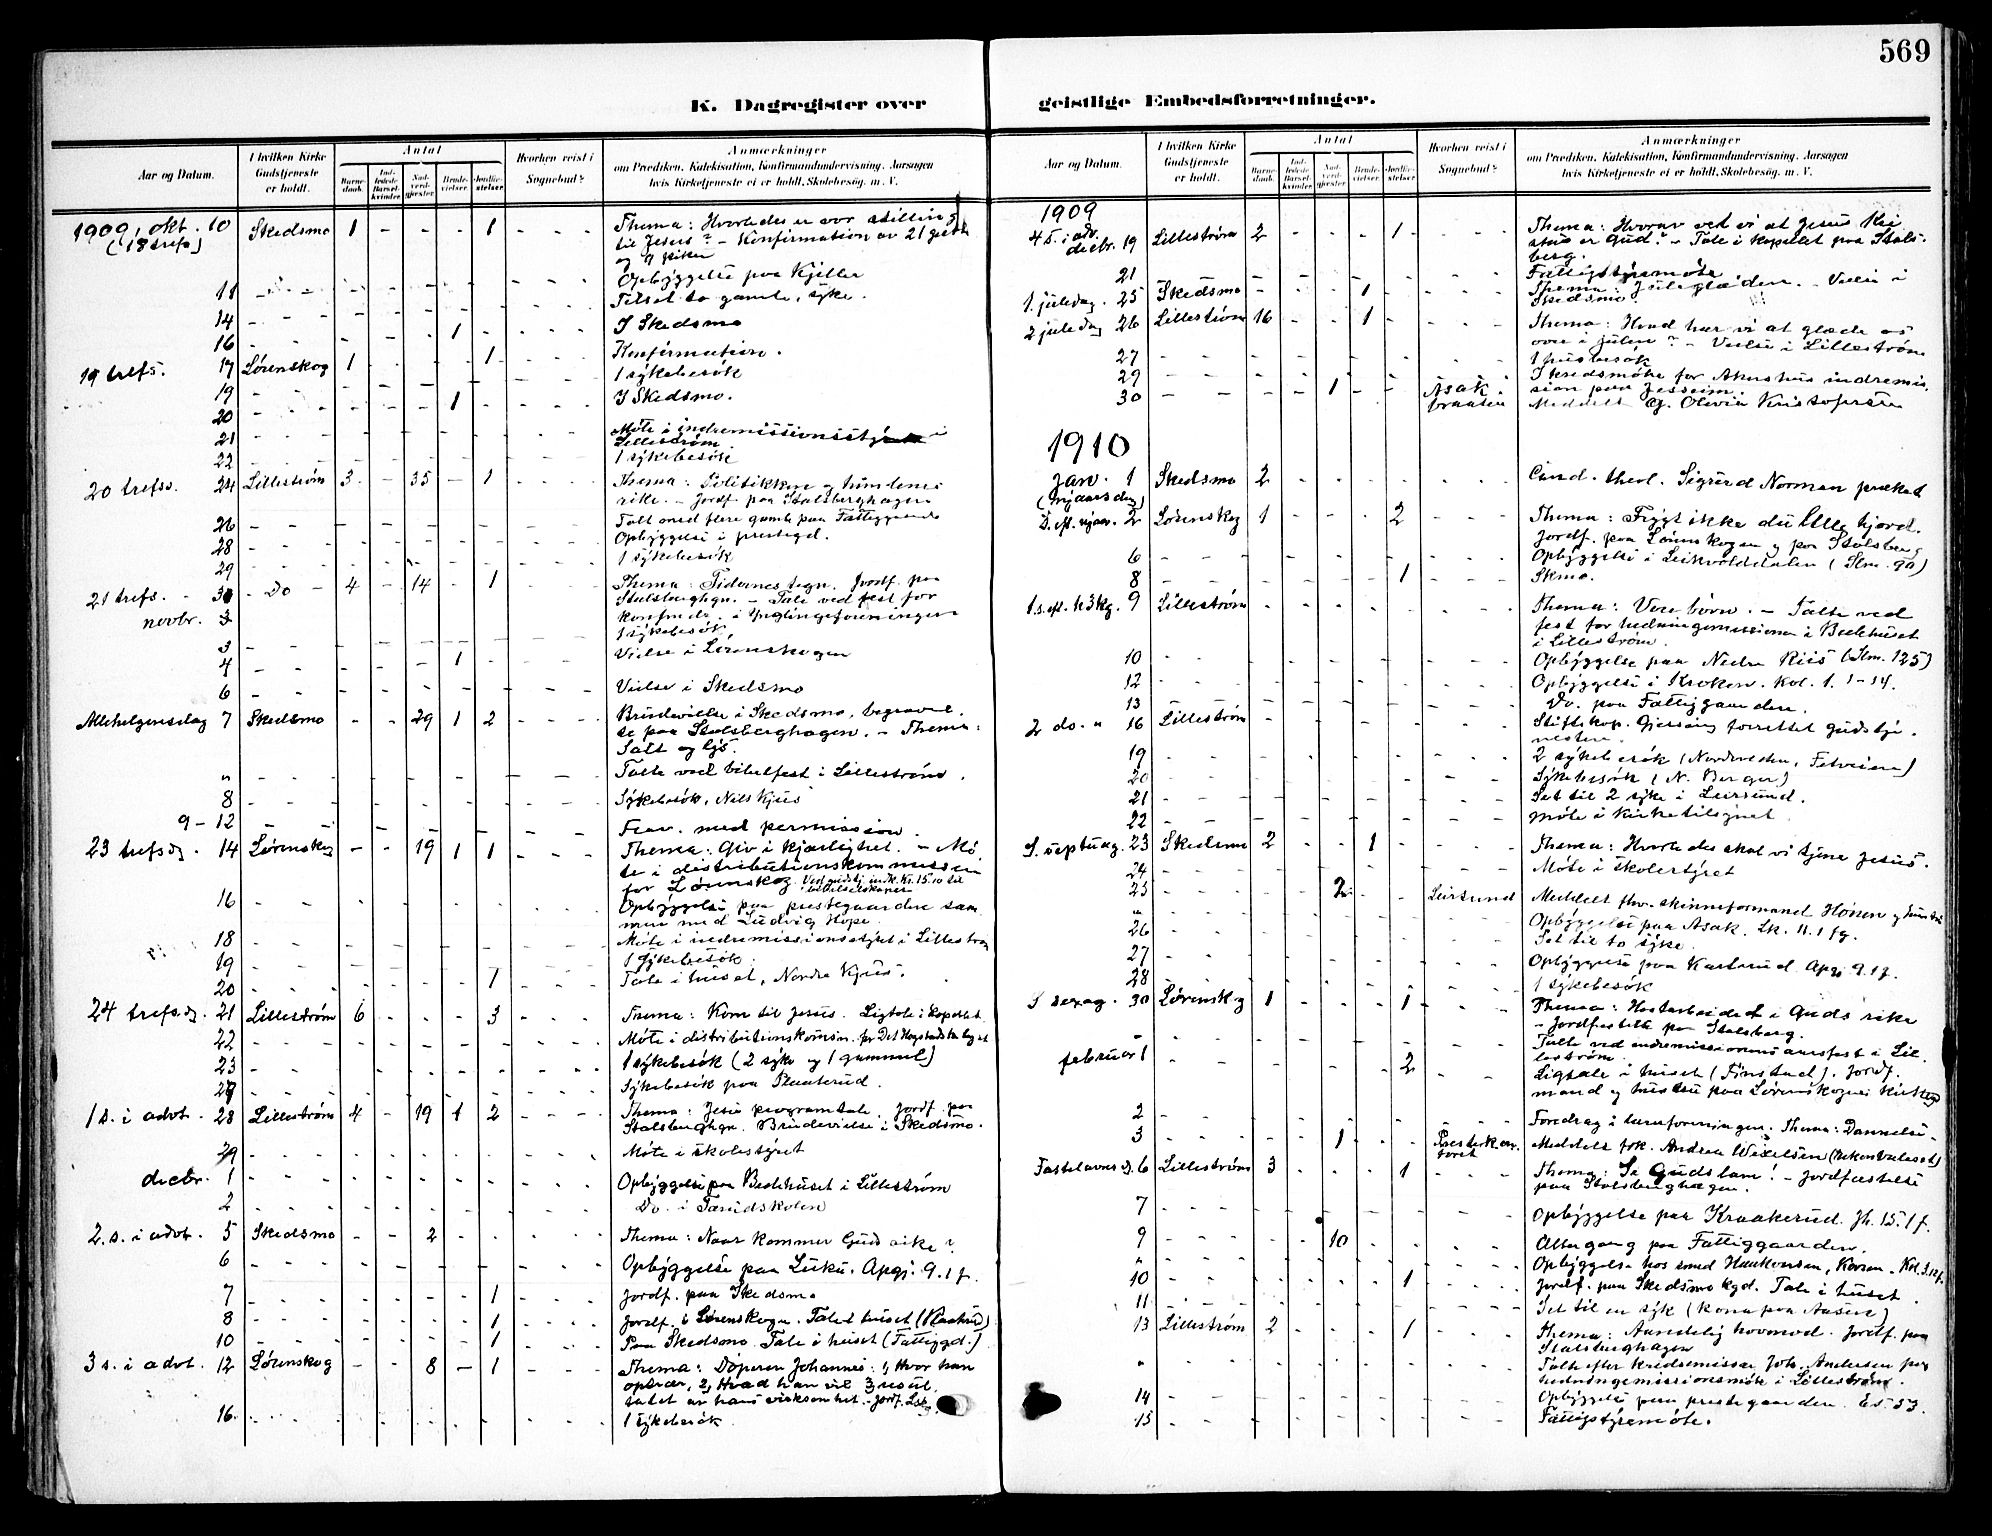 569
K. Dagregister over
Aar og Datum.
I hvilken Kirke Gudstjeneste er holdt.
Antal
Barne-daab.
Ind-ledede Barsel-kvinder
Nad-verd-gjester
Brude-vielser.
Jordfæ-stelser
Hvorhen reist i Sognebud?
Anmærkninger
om Prædiken, Katekisation, Konfirmandundervisning, Aarsagen
hvis Kirketjeneste ei er holdt, Skolebesøg. m. V.
1909, okt. 10 Skedsmo 1 - - - 1 Thema: Hvorledes er vor stilling
(18 trefs) til Jesus? - Konfirmation av 21 gutt
og 9 piker
Opbyggelse paa Kjeller
11 Tilset to gamle, syke.
14 1 I Skedsmo
16 Konfirmation.
19 trefs. 17 Lørenskog 1 1 1 sykebesök
19 1 I Skedsmo.
20
21 Möte i indremissionsstyret i
Lilleström
22 1 sykebesök
20 trefs. 24 Lilleström 3 - 35 - 1 Thema: Politikken og himlenes
rike. - Jordf. paa Stalsberghagen
26 Talt med flere gamle paa Fattiggaarden
28 Opbyggelse i prestegd.
29 1 sykebesök
21 trefs. - 31 - Do - 4 - 14 - 1 Thema: Tidernes tegn. Jordf. paa
Stalsberghgn. - Tale ved fest for
novbr. 2 konfirmde. i Ynglingeforeningen
1 sykebesök
3 1 Vielse i Lörenskogen
4
6 Vielse i Skedsmo
Allehelgensdag 7 Skedsmo - - 29 1 2 Brudevielse i Skedsmo, begravel-
se paa Stalsberghagen. - Thema:
Salt og lys.
" Talte ved bibelfest i Lilleström.
8 Sykebesök, Nils Kjus
9 - 12 Frav. med permission.
23 trefsdg. 14 Lørenskog - - 19 1 1 Thema: Giv i kjærlighet. - Mö-
te i distributionskommissien
for Lørenskog. Ved gudstj. indk. Kr. 15.10 til bibelselskapet
16 Opbyggelse paa prestegaarden sam-
men med Ludvig Hope.
18 Möte i indremissionsstyret i Lilleström
19 1 sykebesök.
20 1 Tale i huset, Nordre Kjus.
24 trefsdg. 21 Lilleström 6 - - - 3 Thema: Kom til Jesus. Ligtale i kapellet.
22 Möte i distributionskomsn.
23 1 sykebesök (2 syke og 1 gammel)
Sykebesök paa Plaaterud.
1 s. i advt. 28 Lilleström 4 - 19 1 2 Thema: Jesu programtale. Jordf. paa
Stalsberghgn. Brudevielse i Skedsmo.
29 Möte i skolestyret
decbr. 1 Opbyggelse paa Bedehuset i Lilleström
2 Do. i Tærudskolen
2. s. i advt. 5 Skedsmo - - 2 Thema: Naar kommer Guds rike?
6 Opbyggelse paa Luku. Apgj. 9. 1 f.
7 1 Jordf. paa Skedsmo
8 1 Jordf. i Lørenskogn. Tale i huset (Plaaterud)
10 1 Paa Skedsmo. Tale i huset (Fattiggd.)
3 s. i advt. 12 Lørenskog - - 8 - 1 Thema: Döperen Johannes: 1, Hvor han
optrær, 2, Hvad han vil 3 resul-
tatet av hans virksomhet. - Jordf.
16. 1 sykebesök.
geistlige Embedsforretninger.
Aar og Datum.
I hvilken Kirke Gudstjeneste er holdt.
Antal
Barne-daab.
Ind-ledede Barsel-kvinder
Nad-verd-gjester
Brude-vielser.
Jordfæ-stelser
Hvorhen reist i Sognebud?
Anmærkninger
om Prædiken, Katekisation, Konfirmandundervisning, Aarsagen
hvis Kirketjeneste ei er holdt, Skolebesøg. m. V.
1909
4 s. i adv. decbr. 19 Lilleström 2 - - - 1 Thema: Hvorav ved vi at Jesus Kri-
stus er Gud? - Tale i kapellet paa Stals-
berg.
21 Fattigstyremöte
1 juledag. 25 Skedsmo 1 Thema: Juleglæden. - Vielse i
Skedsmo
2 juledag 26 Lilleström 16 - - 1 Thema: Hvad har vi at glæde os
over i julen? - Vielse i Lilleström
27 1 husbesök
29 Kredsmöte for Akershus indremis-
sion paa Jessheim.
30 1 Asak Meddelt Olivia Kristofersen
1910
Jan. 1 Skedsmo 2 Cand. theol. Sigurd Norman præket
(nyaarsdag)
S. eft. nyaar. 2 Lørenskog 1 2 Thema: Frygt ikke du lille hjord.
Jordf. paa Lörenskogen og paa Stalsberg
6 Opbyggelse i Leikvolddalen
8 1 Skmo.
1 s. eft. h 3 kg. 9 Lilleström Thema: Vore børn. - Talte ved
fest for hedningemissionen i Bedehuset
i Lilleström.
10 Opbyggelse paa Nedre Riis (Slm. 125)
12 Opbyggelse i Kroken. Kol. 1. 1-14.
13 Do. paa Fattiggaarden.
2 do. " 16 Lilleström Stiftskap. Gjersøng forrettet gudstje-
nesten.
19 2 sykebesök
20 Sykebesök (N. Berger)
21 Set til 2 syke i Leirsund.
22 möte i kirketilsynet
S. septuag. 23 Skedsmo 2 1 Thema: Hvorledes skal vi tjene Jesus.
24 Möte i skolestyret
25 2 Leirsund Meddelt fhv. skinneformand
" Opbyggelse paa Asak. Lk. 11. 1 fg.
26 Set til to syke.
27 Opbyggelse paa Karlsrud. Apgj 9. 1 f.
28 1 sykebesök
S sexag. 30 Lørenskog 1 1 Thema: Høstarbeidet i Guds rike
- Jordfæstelse paa Stalsberg.
" Talte ved indremissionens aarsfest i Lil-
leström.
februar 1 2 Ligtale i huset (Finstad). Jordf.
mand og hustru paa Lørenskogens kirkegd
2 Foredrag i turnforeningen. Thema: Dannelse.
3 1 Meddelt frk. Andrea Wexelsen
Fastelavns S. 6 Lilleström 3 1 Thema: Se Guds lam! - Jordfæstelse
paa Stalsberghagen.
7 Opbyggelse paa Kraakerud. Jh. 15. 1 f.
9 10 Altergang paa Fattiggaarden.
" Opbyggelse hos smed Haakonsen,
10 1 Jordf. paa Skedsmo kgd. Tale i huset.
11 Set til en syk (kona paa Aasen)
13 Lilleström 2 1 Thema: Aandelig hovmod. Jordf. paa
Stalsberghagen
" Talte efter kredsmissær Joh. Andersen paa
hedningemissionsmöte i Lilleström.
14 Opbyggelse paa prestegaarden. Es 53.
15 Fattigstyremöte.